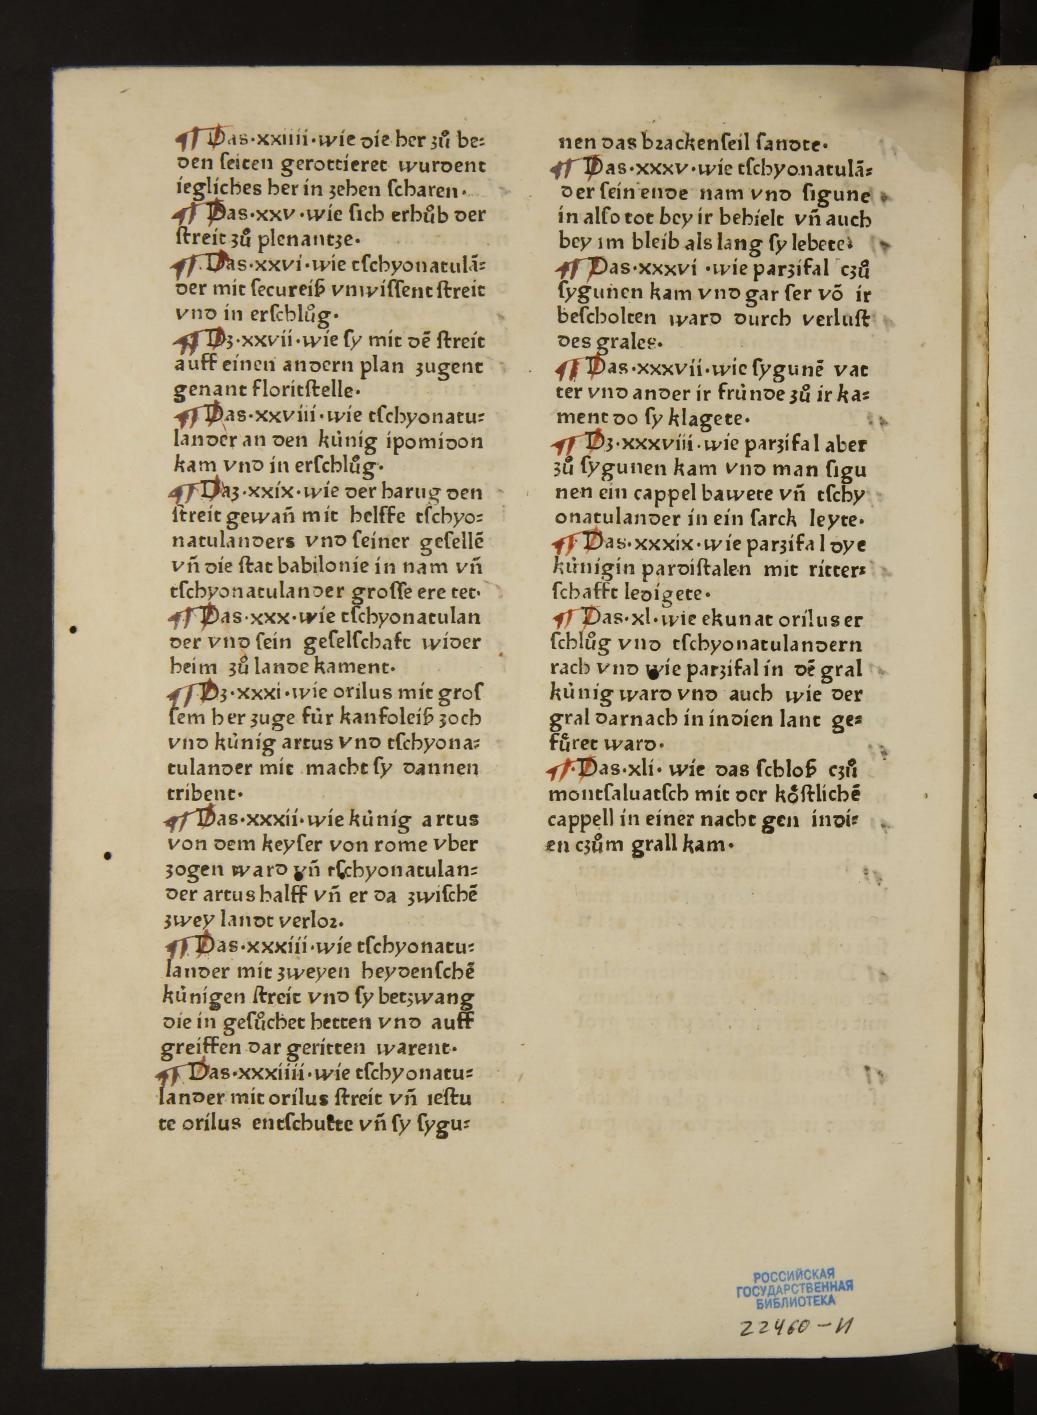 ¶ Das·xxiiii·wie die her zů be⸗
den seiten gerottieret wurdent
iegliches her in zehen scharen·
¶ Das·xxv·wie sich erhůb der
streit zů plenantze·
¶ Das·xxvi·wie tschyonatulā⸗
der mit secureiß vnwissent streit
vnd in erschlůg·
¶ Dz·xxvii·wie sy mit dē streit
auff einen andern plan zugent
genant floritstelle·
¶ Das·xxviii·wie tschyonatu⸗
lander an den künig ipomidon
kam vnd in erschlůg·
¶ Daz·xxix·wie der barug den
streit gewañ mit helffe tschyo⸗
natulanders vnd seiner gesellē
vñ die stat babilonie in nam vñ
tschyonatulander grosse ere tet·
¶ Das·xxx·wie tschyonatulan
der vnd sein geselschaft wider
heim zů lande kament·
¶ Dz·xxxi·wie orilus mit gros
sem her zuge für kanfoleiß zoch
vnd künig artus vnd tschyona⸗
tulander mit macht sy dannen
tribent·
¶ Das·xxxii·wie künig artus
von dem keyser von rome vber
zogen ward vñ tschyonatulan⸗
der artus halff vñ er da zwischē
zwey landt verloꝛ·
¶ Das·xxxiii·wie tschyonatu⸗
lander mit zweyen heydenschē
künigen streit vnd sy betzwang
die in gesůchet hetten vnd auff
greiffen dar geritten warent·
¶ Das·xxxiiii·wie tschyonatu⸗
lander mit orilus streit vñ iestu
te orilus entschutte vñ sy sygu⸗
nen das bꝛackenseil sandte·
¶ Das·xxxv·wie tschyonatulā⸗
der sein ende nam vnd sigune
in also tot bey ir behielt vñ auch
bey im bleib als lang sy lebete·
¶ Das·xxxvi·wie parzifal czů
sygunen kam vnd gar ser vō ir
bescholten ward durch verlust
des grales·
¶ Das·xxxvii·wie sygunē vat
ter vnd ander ir fründe zů ir ka⸗
ment do sy klagete·
¶ Dz·xxxviii·wie parzifal aber
zů sygunen kam vnd man sigu
nen ein cappel bawete vñ tschy
onatulander in ein sarck leyte·
¶ Das·xxxix·wie parzifal dye
künigin pardistalen mit ritter⸗
schafft ledigete·
¶ Das·xl·wie ekunat orilus er
schlůg vnd tschyonatulandern
rach vnd wie parzifal in dē gral
künig ward vnd auch wie der
gral darnach in indien lant ge⸗
fůret ward·
¶ Das·xli· wie das schloß czů
montsaluatsch mit der kostlichē
cappell in einer nacht gen indi⸗
en czům grall kam·
РОССИЙСКАЯ
ГОСУДАРСТВЕННАЯ
БИБЛИОТЕКА
22460-И